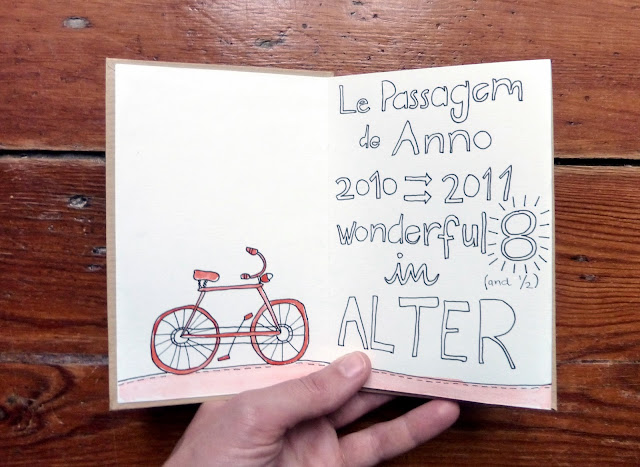 Le Passagem
de Anno
2010 ⇉ 2011
wonderful 8
in (and ½)
ALTER